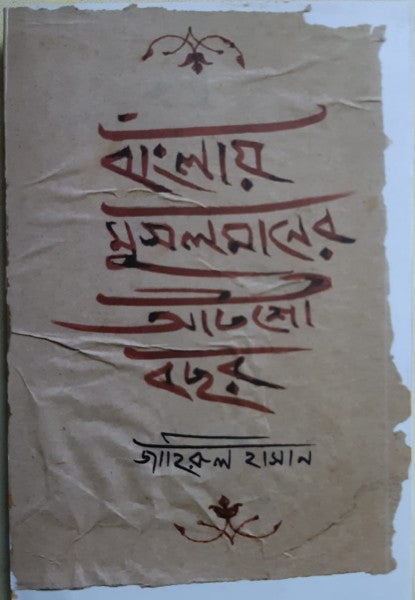 বাংলায়
মুসলমানের
আটশো
বছর
জাহিরুল হাসান